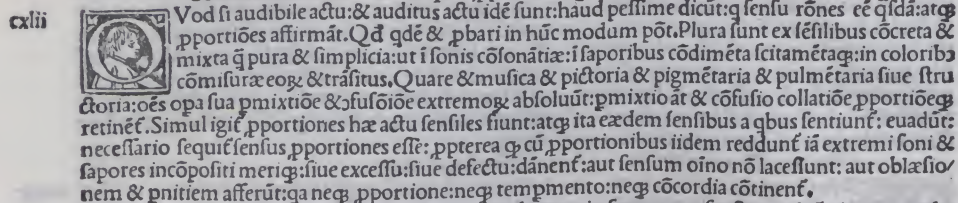 cxlii
QVod ſi audibile actu:& auditus actu idē ſunt:haud peſſime dicūt:q ſenſu rōnes eē qſdā:atqꝫ
ꝓportiōes affirmāt.Qd̄ qdē & ꝓbari in hūc modum pōt.Plura ſunt ex ſēſilibus cōcreta &
mixta q̄ pura & ſimplicia:ut ī ſonis cōſonātiæ:ī ſaporibus cōdimēta ſcitamētaqꝫ:in coloribꝫ
cōmiſuræ eoꝝ & trāſitus.Quare & muſica & pictoria & pigmētaria & pulmētaria ſiue ſtru
ctoria:oēs opa ſua pmixtiōe & ꝯfuſōiōe extremoꝝ abſoluūt:pmixtio āt & cōfuſio collatiōe ꝓportiōēqꝫ
retinēt.Simul igit̄ ꝓportiones hæ actu ſenſiles fiunt:atqꝫ ita eædem ſenſibus a qbus ſentiunt̄: euadūt:
neceſſario ſequit̄ ſenſus ꝓportiones eſſe: ꝓpterea ꝙ cū ꝓportionibus iidem reddunt̄ iā extremi ſoni &
ſapores incōpoſiti meriqꝫ:ſiue exceſſu:ſiue defectu:dānent̄:aut ſenſum oīno nō laceſſunt: aut oblæſio/
nem & pnitiem afferūt:qa neqꝫ ꝓportione:neqꝫ tempmento:neqꝫ cōcordia cōtinent̄.